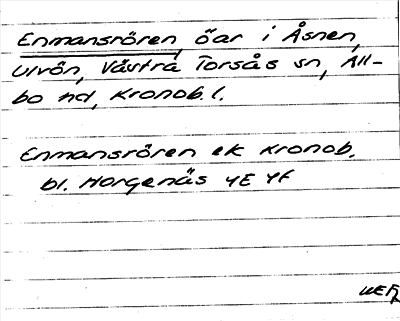 Enmansrören, öar i Åsnen,
Ulvön, Västra Torsås sn, All-
bo hd, Kronob. l.
Enmansrören ek Kronob.
bl. Horgenäs 4E 4f